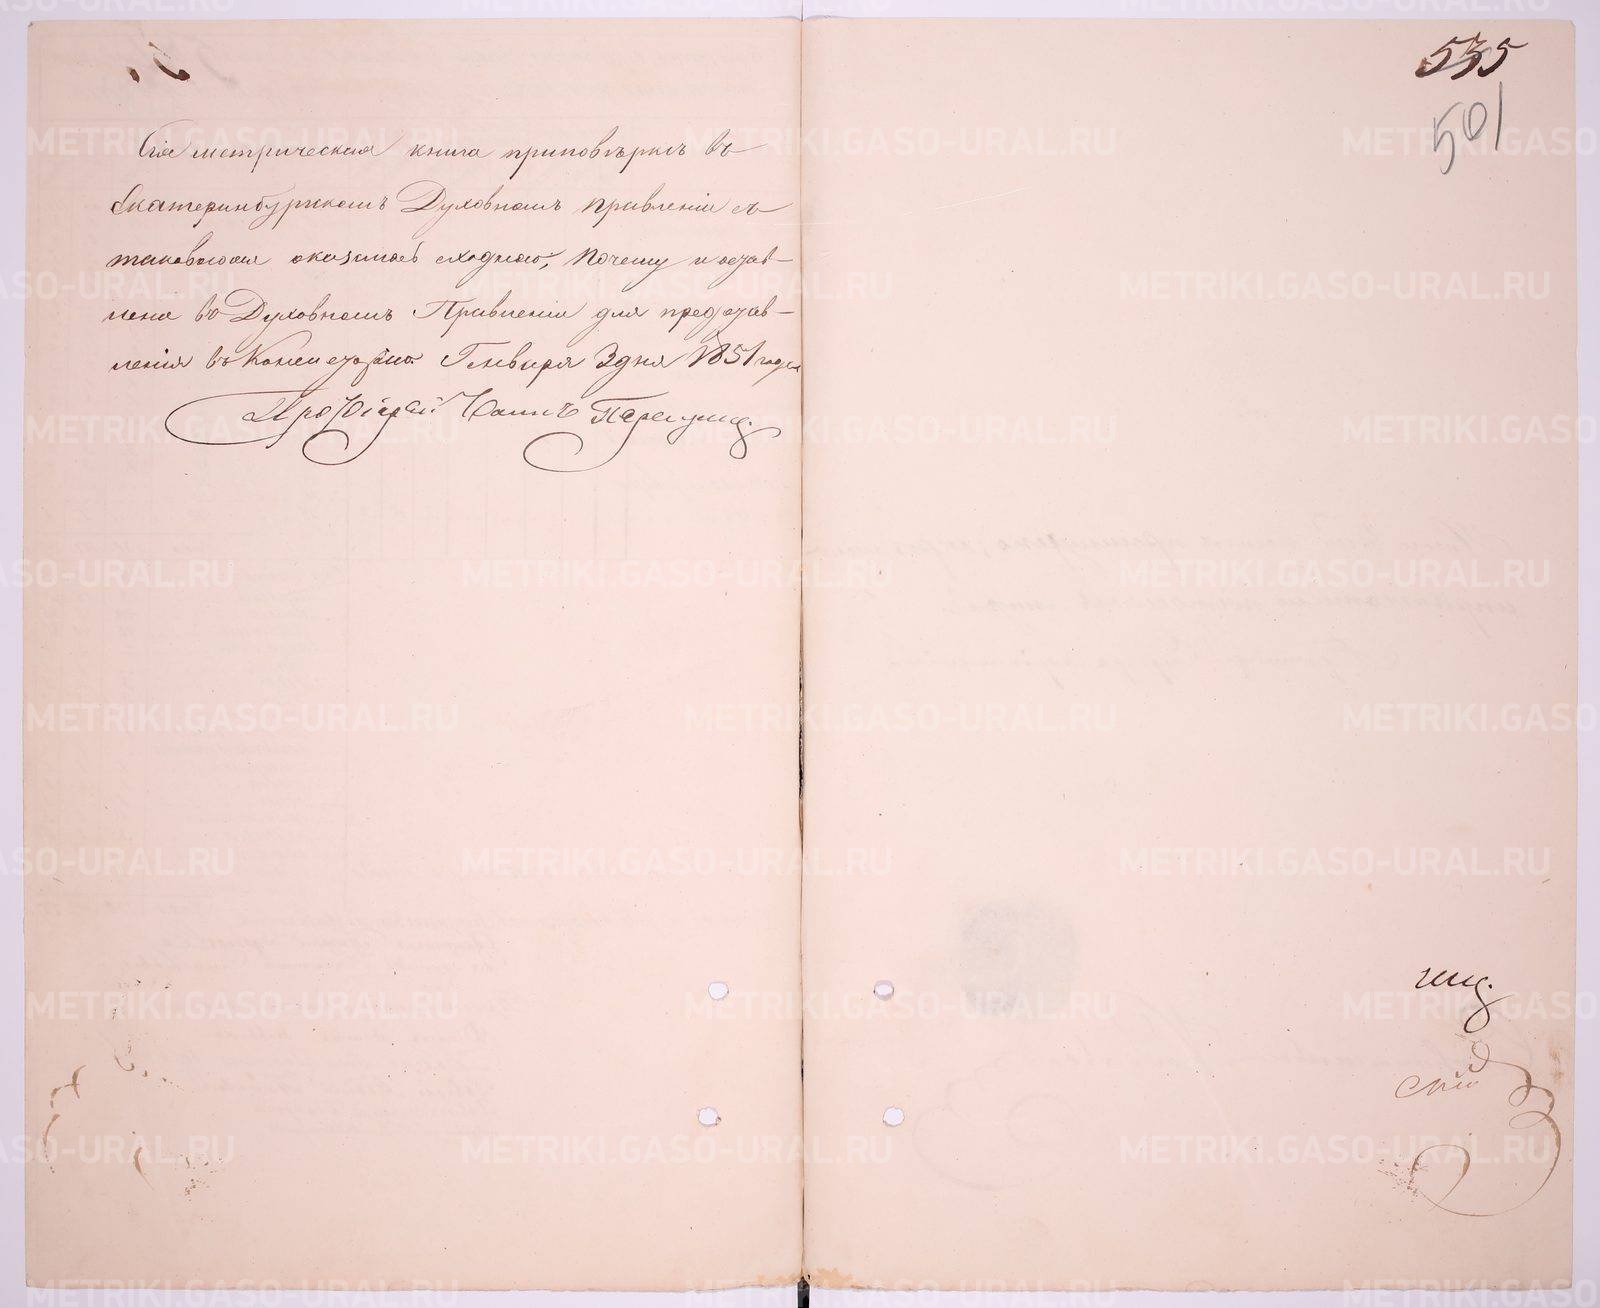 Сія метрическая книга приповѣркѣ въ
Екатеринбургскомъ Духовномъ правленіи съ
таковоюжъ оказалась сходною, почему и остав-
лена во Духовномъ Правленіи для представ-
ленія въ Консисторію. Генваря 3 дня 1851 года
Протоіерей
535
501
скій
METRIKI.GASO-URAL.RU